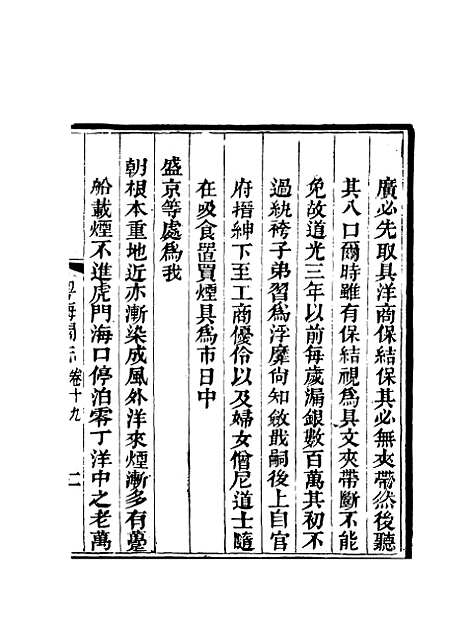 廣必先取具洋商保結保其必無夾帶然後聽
其入口爾時雖有保結視爲具文夾帶斷不能
免故道光三年以前每歲漏銀數百萬其初不
過紈袴子弟習爲浮靡尙知斂戢嗣後上自官
府搢紳下至工商優伶以及婦女僧尼道士隨
在吸食置買煙具爲市日中
盛京等處爲我
朝根本重地近亦漸染成風外洋來煙漸多有躉
船載煙不進虎門海口停泊零丁洋中之老萬
卷十九
二